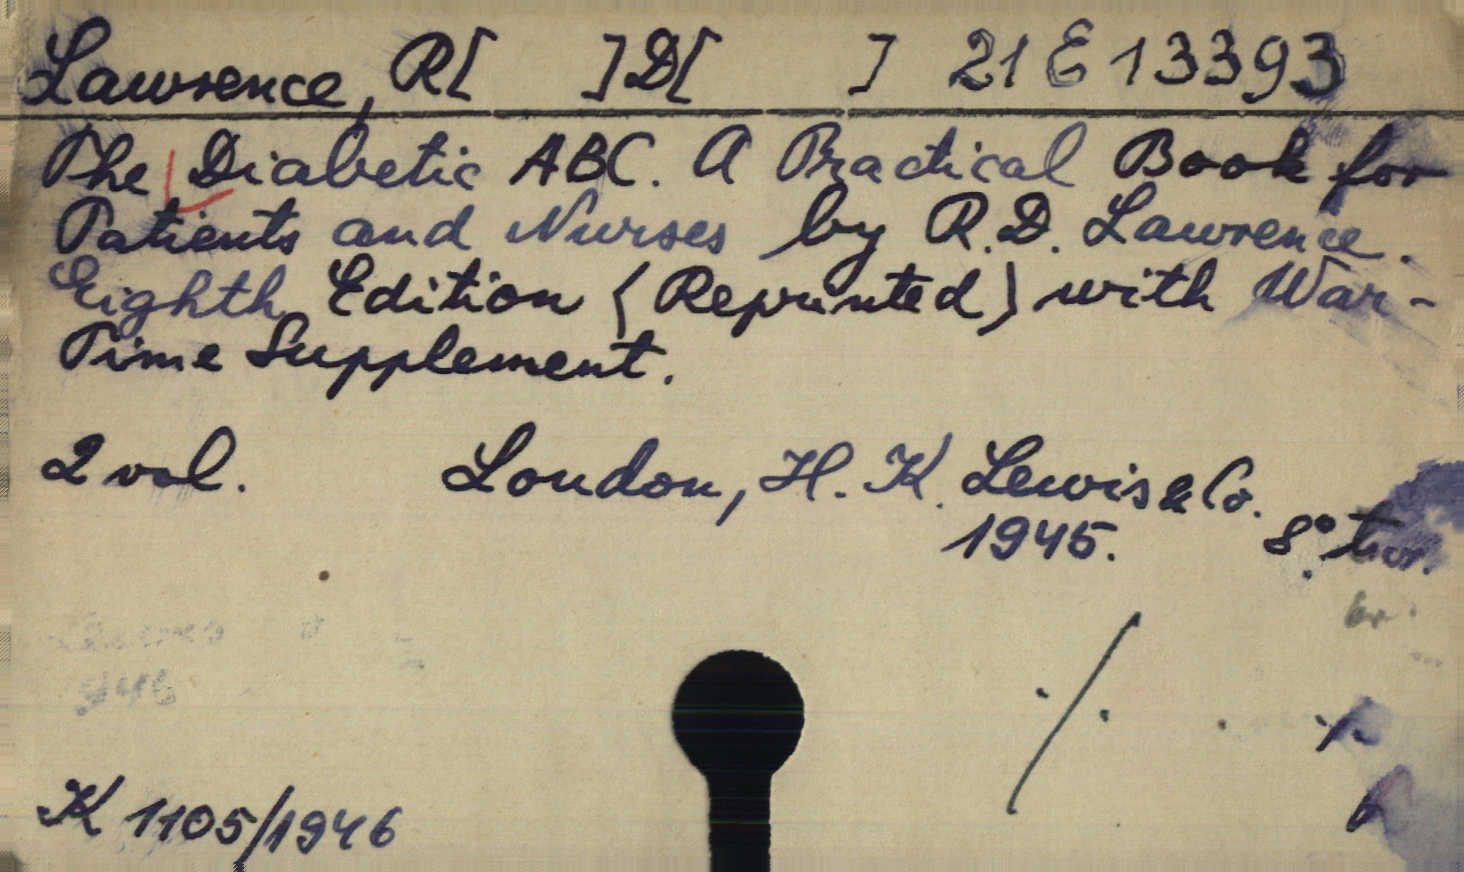 Lawrence, R[ ]D[ ] 21 E 13393
The Diabetic ABC. A Practical Book for
Patients and Nurses by R.D. Lawrence.
Eighth Edition (Reprinted) with War-
Time Supplement.
2 vol. London, H. K. Lewis & Co.
1945. 8°.
K 1105/1946